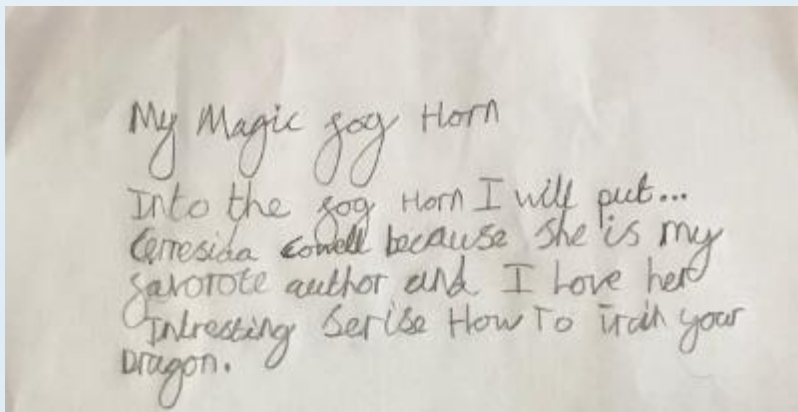 My Magic fog Horn
Into the fog Horn I will put...
Cerresida Cowell because she is my
favorote author and I Love her
Intresting Serise How To Train your
Dragon.